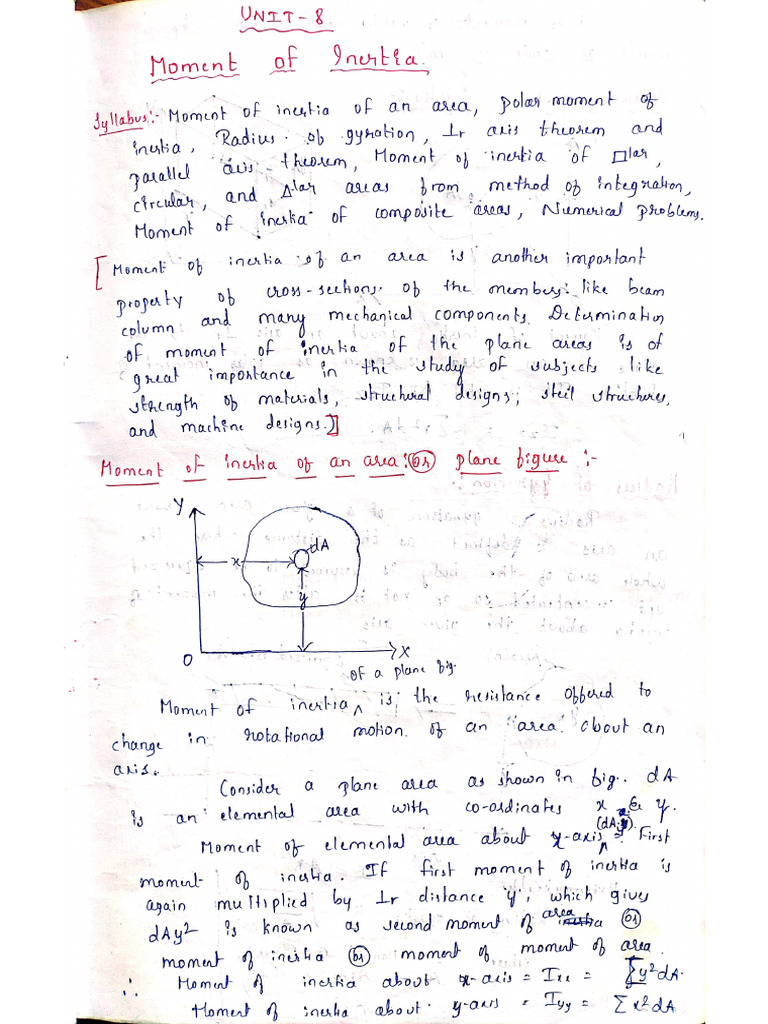 UNIT-8
Moment of Inertia.
Syllabus:- Moment of inertia of an area, polar moment of
inertia, Radius of gyration, ⊥r axis theorem and
parallel axis theorem, Moment of inertia of □lar,
circular, and Δlar areas from method of integration,
Moment of inertia of composite areas, Numerical problems.
[Moment of inertia of an area is another important
property of cross-sections of the members like beam
column and many mechanical components. Determination
of moment of inertia of the plane areas is of
great importance in the study of subjects like
strength of materials, structural designs, steil structures,
and machine designs.]
Moment of inertia of an area: (or) plane figure :-
Y
dA
x
y
O
X
of a plane fig.
Moment of inertia ^ is the resistance offered to
change in rotational motion of an "area" about an
axis.
Consider a plane area as shown in fig. dA
is an elemental area with co-ordinates x & y.
(dA.y)
Moment of elemental area about x-axis ^ = First
moment of inertia. If first moment of inertia is
again multiplied by ⊥r distance 'y', which gives
dAy² is known as second moment of area (or)
moment of inertia (or) moment of moment of area.
∴ Moment of inertia about x-axis = Ixx = Σy²dA.
Moment of inertia about y-axis = Iyy = Σx²dA